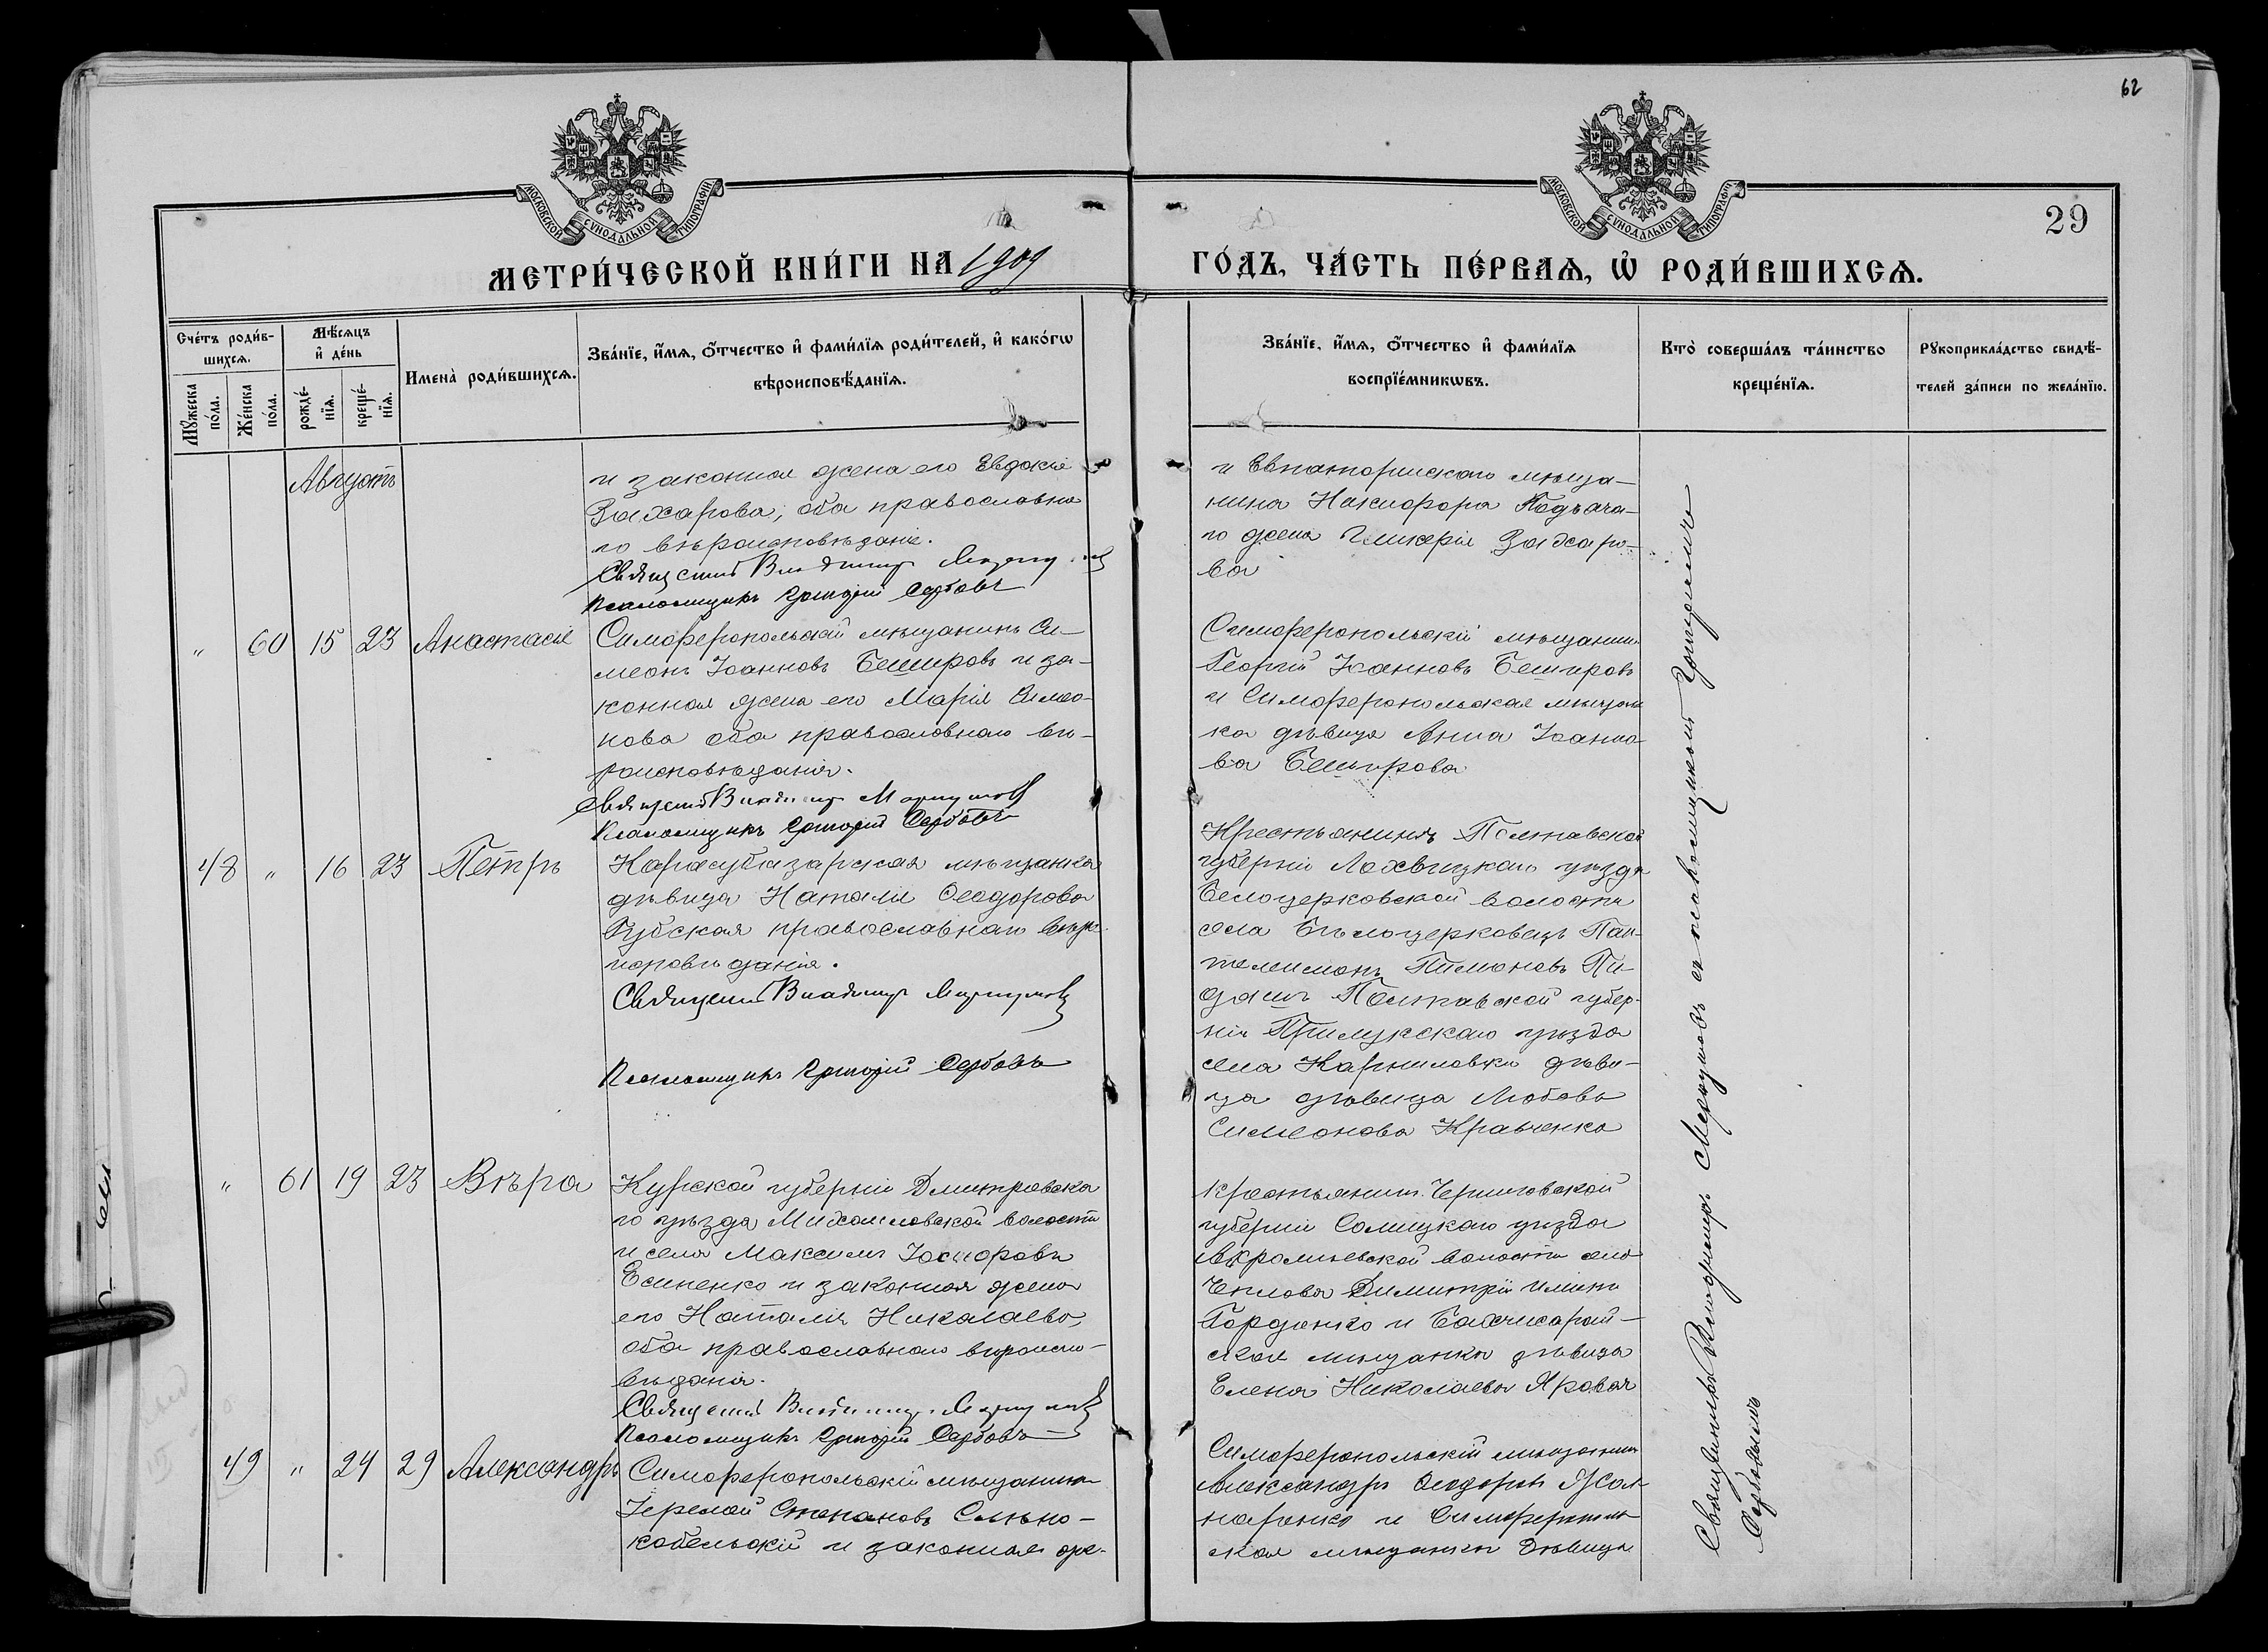 62
МОСКОВСКОЙ СѴНОДАЛЬНОЙ ТИПОГРАФІИ
МОСКОВСКОЙ СѴНОДАЛЬНОЙ ТИПОГРАФІИ
29
МЕТРИ́ЧЕСКОЙ КНИ́ГИ НА 1909
ГО́ДЪ, ЧА́СТЬ ПЕ́РВАѦ, Ѡ҆ РОДИ́ВШИХСѦ.
Сче́тъ роди́в-
шихсѧ.
Мꙋ́жеска
по́ла.
Же́нска
по́ла.
Мѣ́сѧцъ
и҆ де́нь
рожде́-
нїѧ.
креще́-
нїѧ.
Имена̀ роди́вшихсѧ.
Зва́нїе, и҆́мѧ, ѻ҆́тчество и҆ фами́лїѧ роди́телей, и҆ како́гѡ
вѣроисповѣ́данїѧ.
Зва́нїе, и҆́мѧ, ѻ҆́тчество и҆ фами́лїѧ
воспрїе́мникѡвъ.
Кто̀ соверша́лъ та́инство
креще́нїѧ.
Рꙋкоприкла́дство свидѣ́-
телей за́писи по жела́нїю.
Августъ
и законная жена его Евдокія
Захарова, оба православна
го вѣроисповѣданія.
Священникъ Владимиръ
Псаломщикъ Григорій Сербовъ
и Евпаторійскаго мѣща-
нина Никифора
го жена Гликерія Захаро-
ва
" 60 15 23 Анастасія
Симферопольскій мѣщанинъ Си-
меонъ Іоанновъ Бешировъ и за-
конная жена его Марія Симео-
нова оба православнаго вѣ-
роисповѣданія.
Священникъ Владимиръ
Псаломщикъ Григорій Сербовъ
Симферопольскій мѣщанинъ
Георгій Іоанновъ Бешировъ
и Симферопольская мѣщан
ка дѣвица Анна Іоанно-
ва Беширова
48 " 16 23 Петръ
Карасубазарская мѣщанка
дѣвица Наталія Ѳеодорова
православнаго вѣро-
исповѣданія.
Священникъ Владимиръ
Псаломщикъ Григорій Сербовъ
Крестьянинъ Полтавской
губерніи Лохвицкаго уѣзда
Белоцерковской волости
села Бѣлоцерковецъ Пан-
телеимонъ Пимоновъ
Полтавской губер-
ніи Прилукскаго уѣзда
села Карпиловки дѣви-
ца дѣвица Любовь
Симеонова Кравченко
" 61 19 23 Вѣра
Курской губерніи Дмитровска
го уѣзда Михайловской волости
и села Максимъ
Есипенко и законная жена
его Наталія Николаева,
оба православнаго вѣроиспо-
вѣданія.
Священникъ Владимиръ
Псаломщикъ Григорій Сербовъ
крестьянинъ Черниговской
губерніи уѣзда
волости село
Димитрій Ильинъ
Гордіенко и Бахчисарай-
ская мѣщанка дѣвица
Елена Николаева Яровая
49 " 24 29 Александръ
Симферопольскій мѣщанинъ
Іеремій Степановъ Слѣпо-
кобельскій и законная же-
Симферопольскій мѣщанинъ
Александръ Ѳеодоровъ
и Симферополь
ская мѣщанка дѣвица
Священникъ Владимиръ съ псаломщикомъ Григоріемъ
Сербовымъ